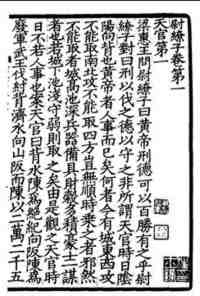 尉繚子卷第一
天官第一
梁惠王問尉繚子曰黃帝刑德可以百勝有之乎尉
繚子對曰刑以伐之德以守之非所謂天官時日陰
陽向背也黃帝者人事而已矣何者今有城東西攻
不能取南北攻不能取四方豈無順時乘之者邪然
不能取者城高池深兵器備具財穀多積豪士一謀
者也若城下池淺守弱則取之矣由是觀之天官時
日不若人事也案天官曰背水陳為絕紀向阪陳為
廢軍武王伐紂背濟水向山阪而陳以二萬二千五